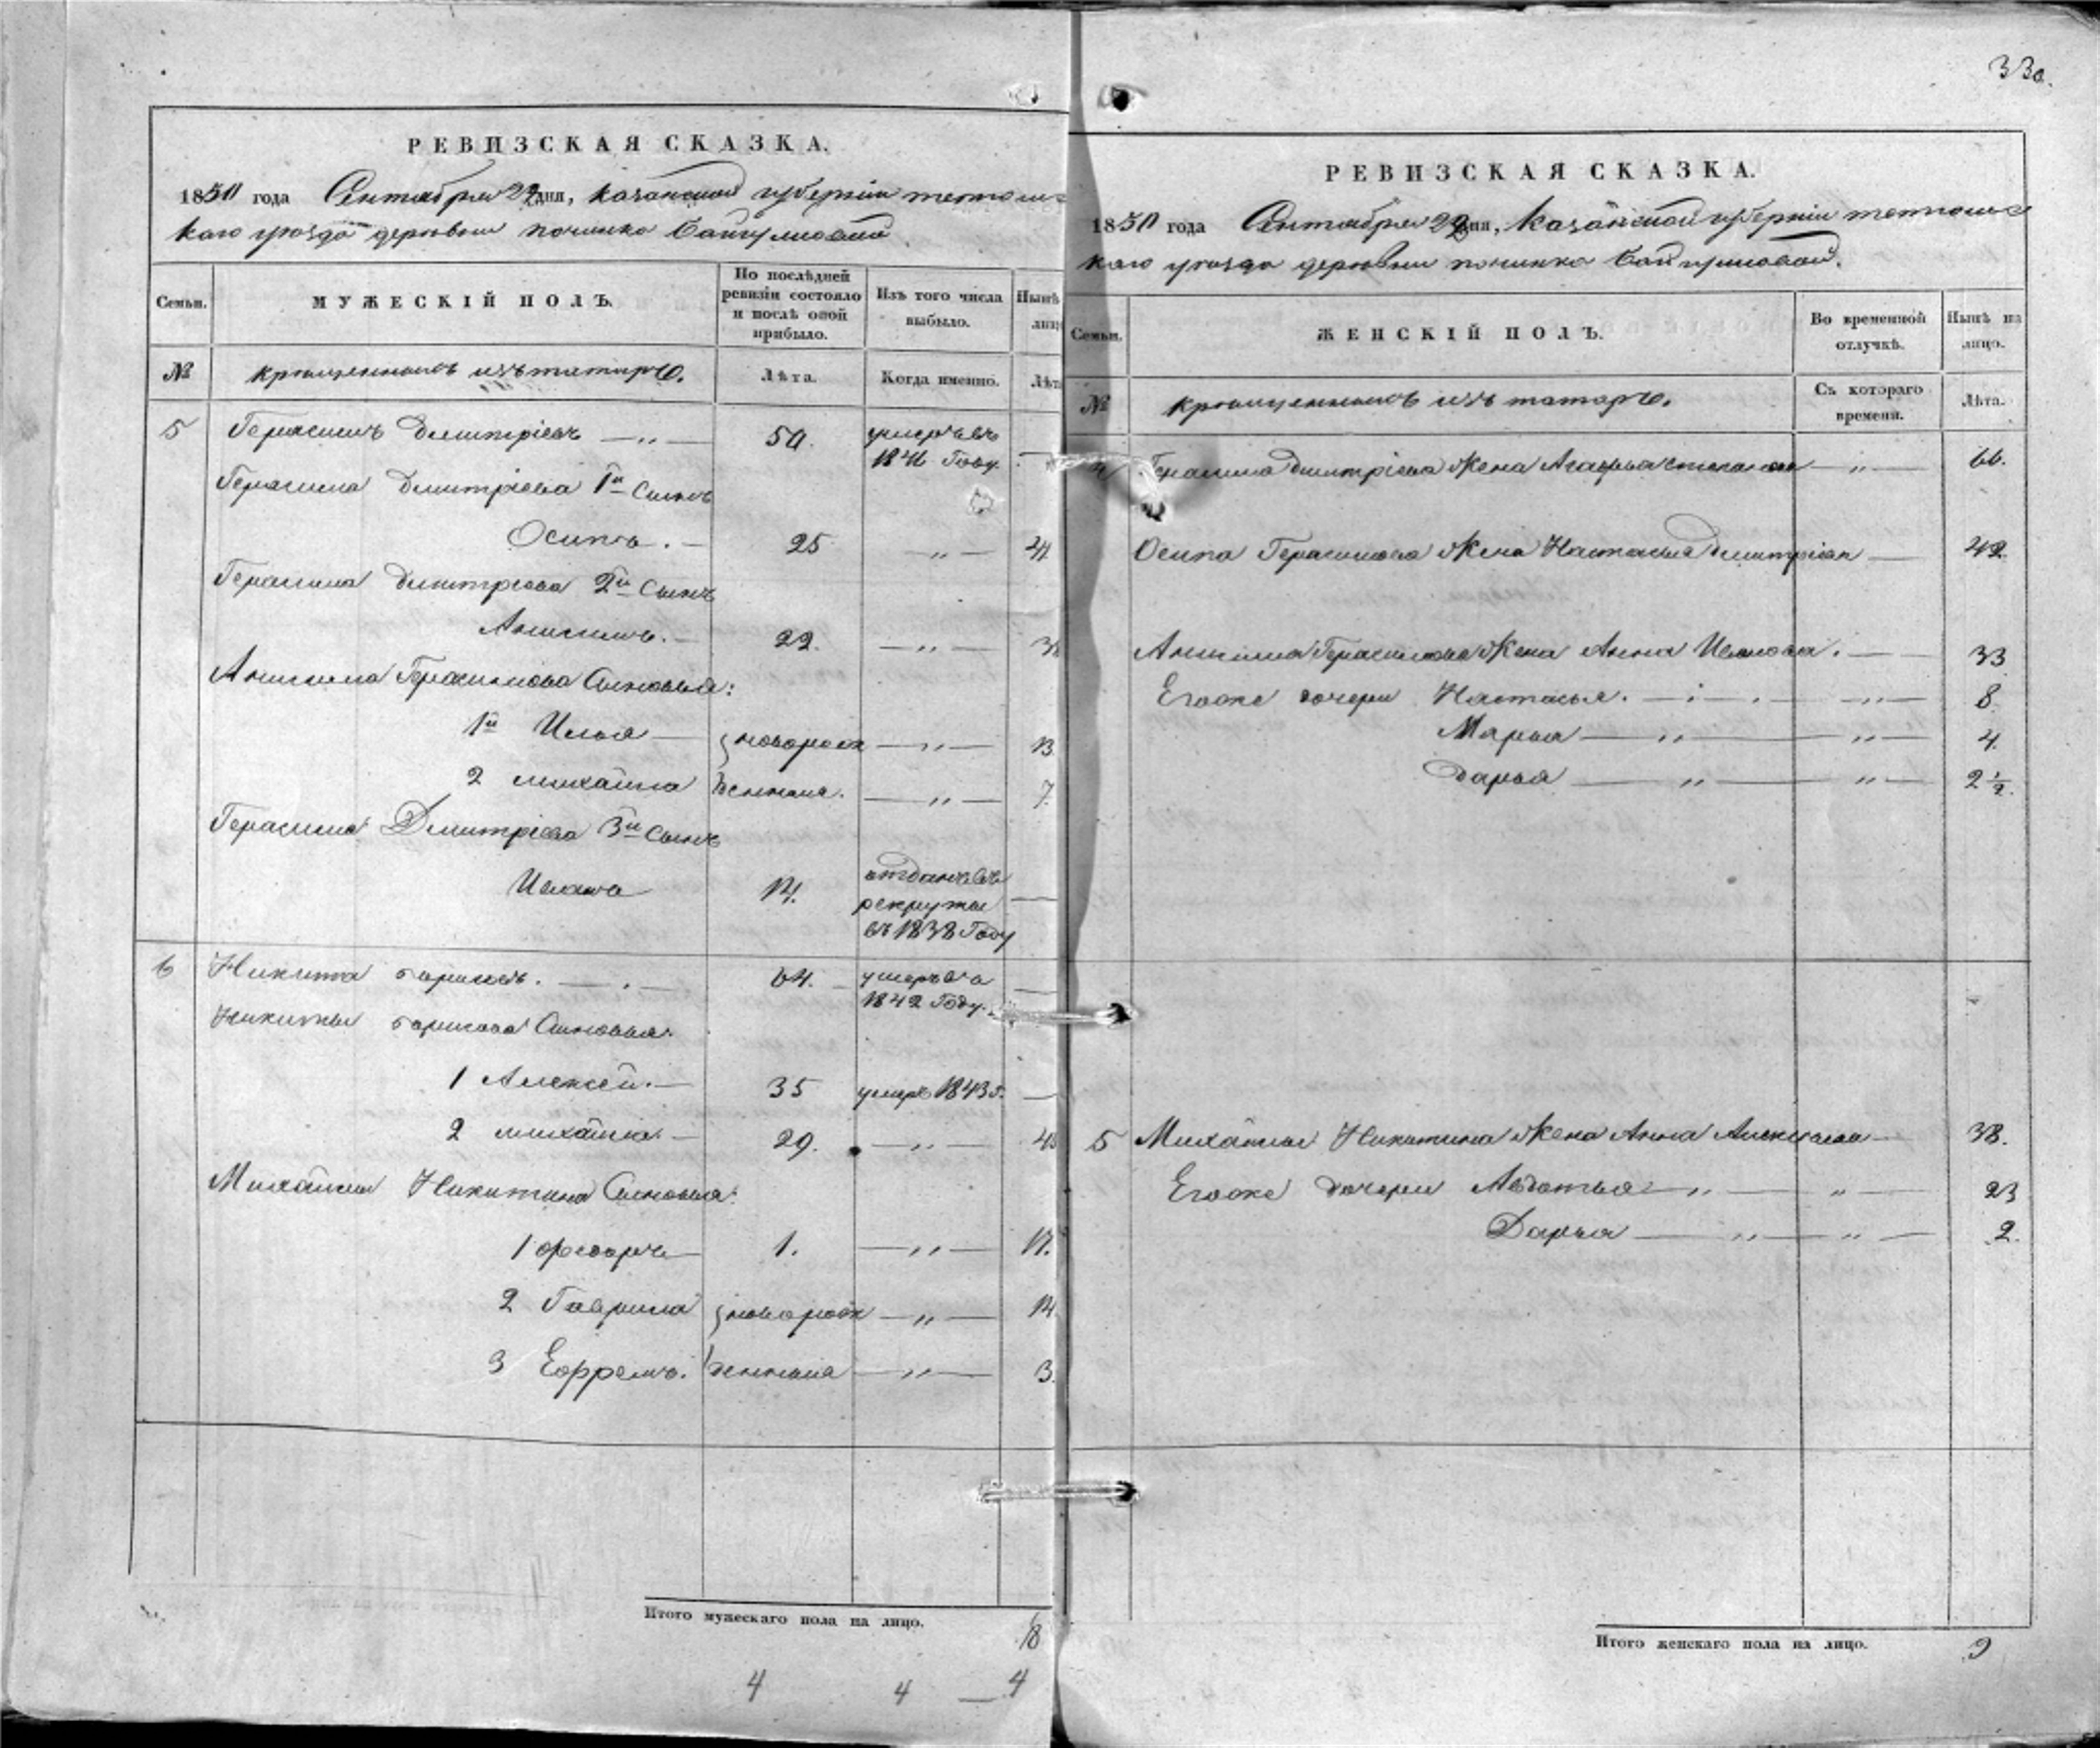 РЕВИЗСКАЯ СКАЗКА.
1850 года Сентября 22 дня, Казанской губерніи тетюшс
каго уѣзда деревни починка Байгуловой
Семьи. МУЖЕСКІЙ ПОЛЪ. По послѣдней ревизіи состояло и послѣ оной прибыло. Изъ того числа выбыло. Нынѣ лиц
№ крещенныхъ изъ татаръ. Лѣта. Когда именно. Лѣта
5 Герасимъ Дмитріевъ — „ — 50. умеръ въ
1846 Году. —
Герасима Дмитріева 1й Сынъ
Осипъ. — 25 — „ — 41
Герасима Дмитріева 2й Сынъ
Анисимъ. — 22. — „ — 38
Анисима Герасимова Сыновья:
1й Илья — новорож — „ — 13
2 Михайла денныя. — „ — 7.
Герасима Дмитріева 3й Сынъ
Иванъ 14. отданъ въ
рекруты —
въ 1838 Году
6 Никита Борисовъ. — . — 64. умеръ въ
1842 Году. —
Никиты Борисова Сыновья:
1 Алексѣй. — 35 умеръ 1843 г. —
2 Михайла. — 29. — „ — 45
Михайлы Никитина Сыновья:
1 Федоръ — 1. — „ — 17.
2 Гаврила новорож — „ — 14
3 Ефремъ. денныя — „ — 3.
Итого мужескаго пола на лицо. 8
4 4 — 4
330.
РЕВИЗСКАЯ СКАЗКА.
1850 года Сентября 22 дня, Казанской губерніи тетюшс
каго уѣзда деревни починка Байгуловой.
Семьи. ЖЕНСКІЙ ПОЛЪ. Во временной отлучкѣ. Нынѣ на лицо.
№ крещенныхъ изъ татаръ. Съ котораго времени. Лѣта.
Герасима Дмитріева Жена Агафья Степанова — „ — 66.
Осипа Герасимова Жена Настасья Дмитріева — 42
Анисима Герасимова Жена Анна Иванова. — 33
Егоже дочери Настасья. — „ — 8
Марья — „ — „ — 4.
Дарья — „ — „ — 2 1/2.
5 Михайлы Никитина Жена Анна Алексѣева — 38.
Егоже дочери Авдотья — „ — „ — 23
Дарья — „ — „ — 2.
Итого женскаго пола на лицо. 9